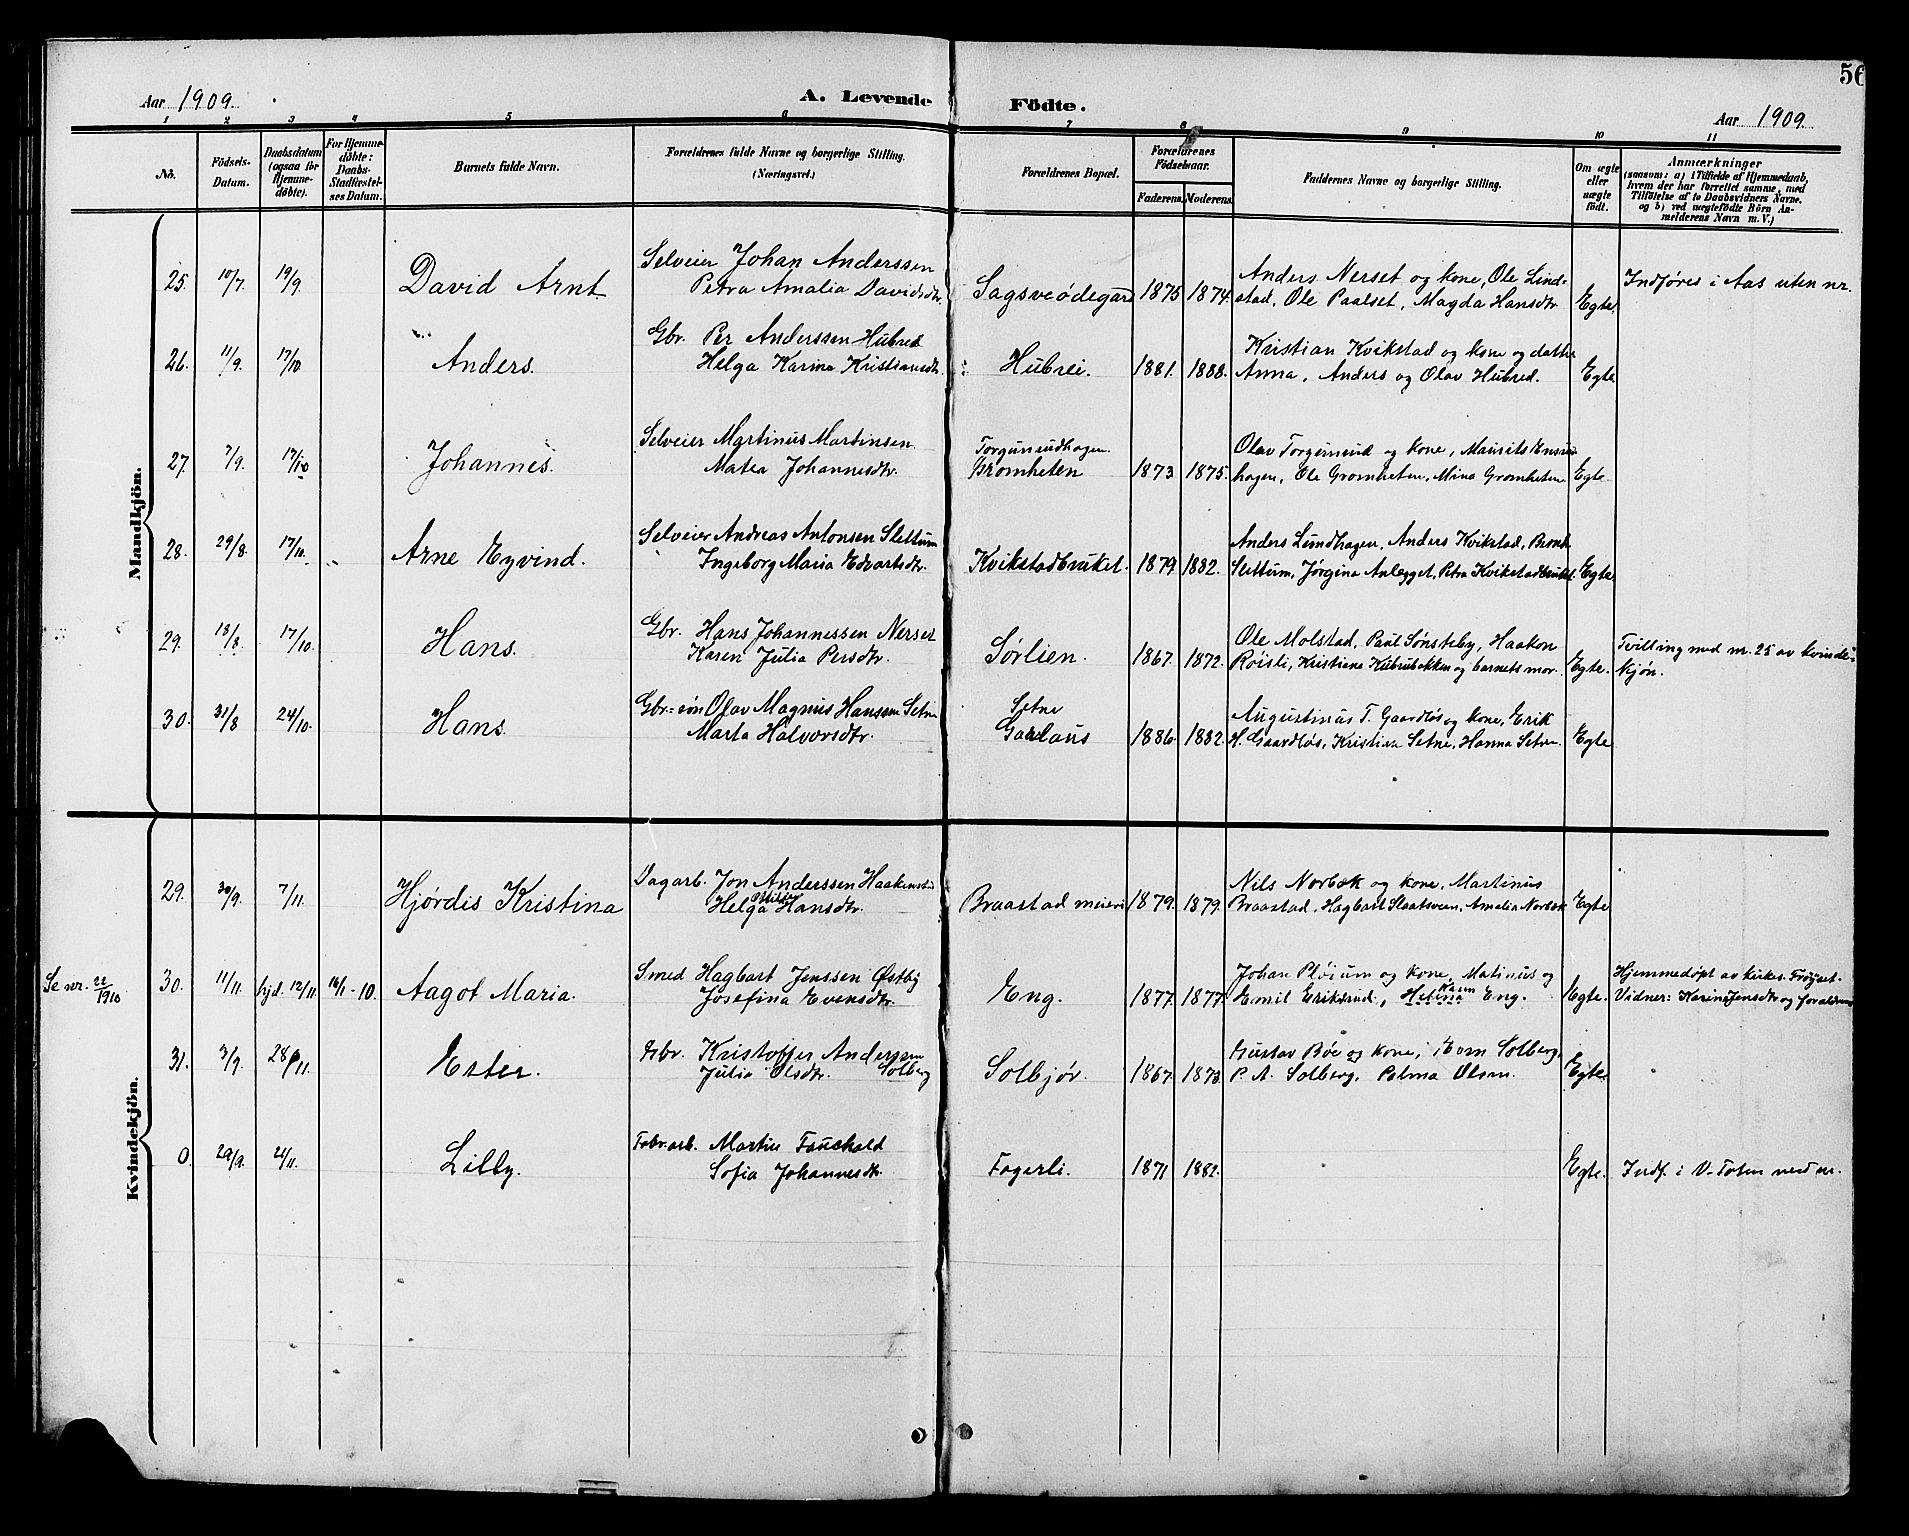 56
Aar 1909.
A. Levende Födte.
Aar 1909.
1 2 3 4 5 6 7 8 9 10 11
No.
Födsels-Datum.
Daabsdatum (ogsaa for Hjemmedöbte).
For Hjemmedöbte: Daabs-Stadfæstelses Datum.
Barnets fulde Navn.
Forældrenes fulde Navne og borgerlige Stilling. (Næringsvei.)
Forældrenes Bopæl.
Forældrenes Födselsaar.
Faderens. Moderens.
Faddernes Navne og borgerlige Stilling.
Om ægte eller uægte födt.
Anmærkninger
(saasom: a) i Tilfælde af Hjemmedaab,
hvem der har forrettet samme, med
Tilföielse af to Daabsvidners Navne.
og b) ved uægtefödte Börn An-
melderens Navn m. V.)
Mandkjön.
25. 10/7. 19/9. David Arnt. Selveier Johan Anderssen
Petra Amalia Davidsdtr. Sagsveødegard 1875 1874. Anders Nerset og kone, Ole Lind-
stad, Ole Paalset, Magda Hansdtr Egte. Indføres i Aas uten nr.
26. 11/9. 17/10. Anders. Gbr. Per Anderssen Hubred
Helga Karina Kristiansdtr. Hubrei. 1881. 1888. Kristian Kvikstad og kone og datter
Anna, Anders og Olav Hubred. Egte
27. 7/9. 17/10 Johannes. Selveier Martinus Martinsen.
Matea Johannesdtr. Torgunrudhagen.
Gromheten 1873 1875. Olav Torgunrud og kone, Maurits
hagen, Ole Gromheten, Mina Gromheten Egte
28. 29/8. 17/10. Arne Eyvind. Selveier Andreas Antonsen Slettum
Ingeborg Maria Edvartsdtr. Kvikstadbruket. 1879 1882. Anders Lundhagen, Anders Kvikstad,
Slettum, Jørgina Anlegget, Petra Kvikstadbruket. Egte
29. 18/8. 17/10. Hans. Gbr. Hans Johannessen Nerset
Karen Julia Persdtr. Sørlien. 1867. 1872. Ole Molstad, Paul Sønsteby, Haakon
Røisli, Kristiane Hubrubakken og barnets mor. Egte. Tvilling med nr. 25 av kvinde-
kjøn.
30. 31/8 24/10. Hans. Gbr.-søn Olav Magnus Hanssen Setne
Marta Halvorsdtr. Setne
Gaarlaus 1886. 1882. Augustinus T. Gaardløs og kone, Erik
H. Gaardløs, Kristian Setne, Hanna Setne. Egte
Kvindekjön.
29. 30/9. 7/11. Hjørdis Kristina Dagarb. Jon Anderssen Haakenstad
Helga Otilie Hansdtr. Braastad meieri 1879. 1879. Nils Norbæk og kone, Martinus
Braastad, Hagbart Slaatsveen, Amalia Norbæk Egte
Se nr. 22/1910 30. 11/11. hjd. 12/11. 16/1 - 10. Aagot Maria. Smed Hagbart Jenssen Østby
Josefina Evensdtr. Eng. 1877. 1877. Johan Pløium og kone, Matinus og
Emil Eriksrud, Helena Karen Eng. Egte. Hjemmedøpt av kirkes. Frøyset.
Vidner: Karina Jensdtr og forældrene
31. 3/9. 28/11. Ester. Gbr. Kristoffer Anderssen
Julia Olsdtr. Solberg Solbjør. 1867. 1873. Gustav Bøe og kone, Solberg,
P. A. Solberg, Palma Olsen. Egte.
0. 29/9. 21/11. Lilly. Fabr.arb. Martin Fauchald
Sofia Johannesdtr. Fagerli. 1871 1882. Egte. Indf. i V-Toten med nr.